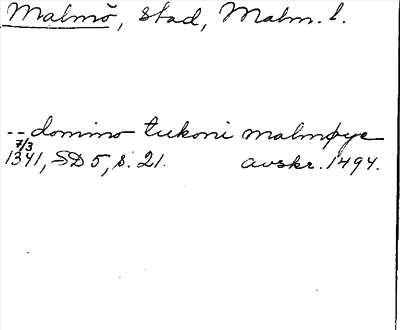 Malmö, stad, Malm. l.
-- domino tukoni malmøye
7/3
1341, SD 5, s. 21. avskr. 1494.